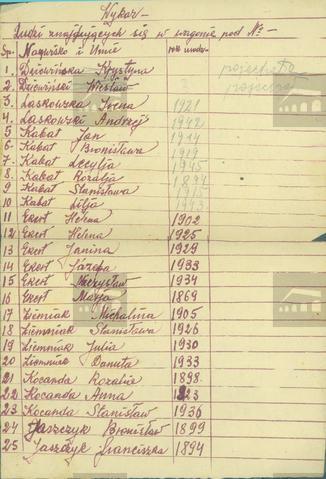 Wykaz
Ludzi znajdujących się w wagonie pod №
Lp. Nazwisko i Imię rok urodz.
1. Dziewińska Krystyna
2. Dziewiński Wiesław
3. Laskowska Irena 1921
4. Laskowski Andrzej 1942
5 Kabat Jan 1914
6. Kabat Bronisława 1919
7. Kabat Lecylja 1945
8 Kabat Rozalja 1894
9 Kabat Stanisława
10 Kabat Lilja 1943
11 Ekert Helena 1902
12 Ekert Helena 1925
13 Ekert Janina 1929
14 Ekert Józefa 1933
15 Ekert Mieczysław 1934
16 Ekert Marja 1869
17 Ziemniak Michalina 1905
18 Ziemniak Stanisława 1926
19 Ziemniak Julia 1930
20 Ziemniak Danuta 1933
21 Kocanda Rozalia 1898
22 Kocanda Anna 1923
23 Kocanda Stanisław 1936
24 Jaszczyk Bronisław 1899
25 Jaszczyk Franciszka 1894